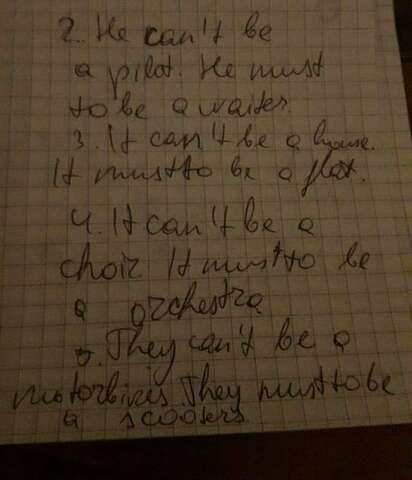 2. He can't be
a pilot. He must
to be a waiter.
3. It can't be a house.
It must to be a flat.
4. It can't be a
choir It must to be
a orchestra
5. They can't be a
motorbikes. They must to be
a scooters